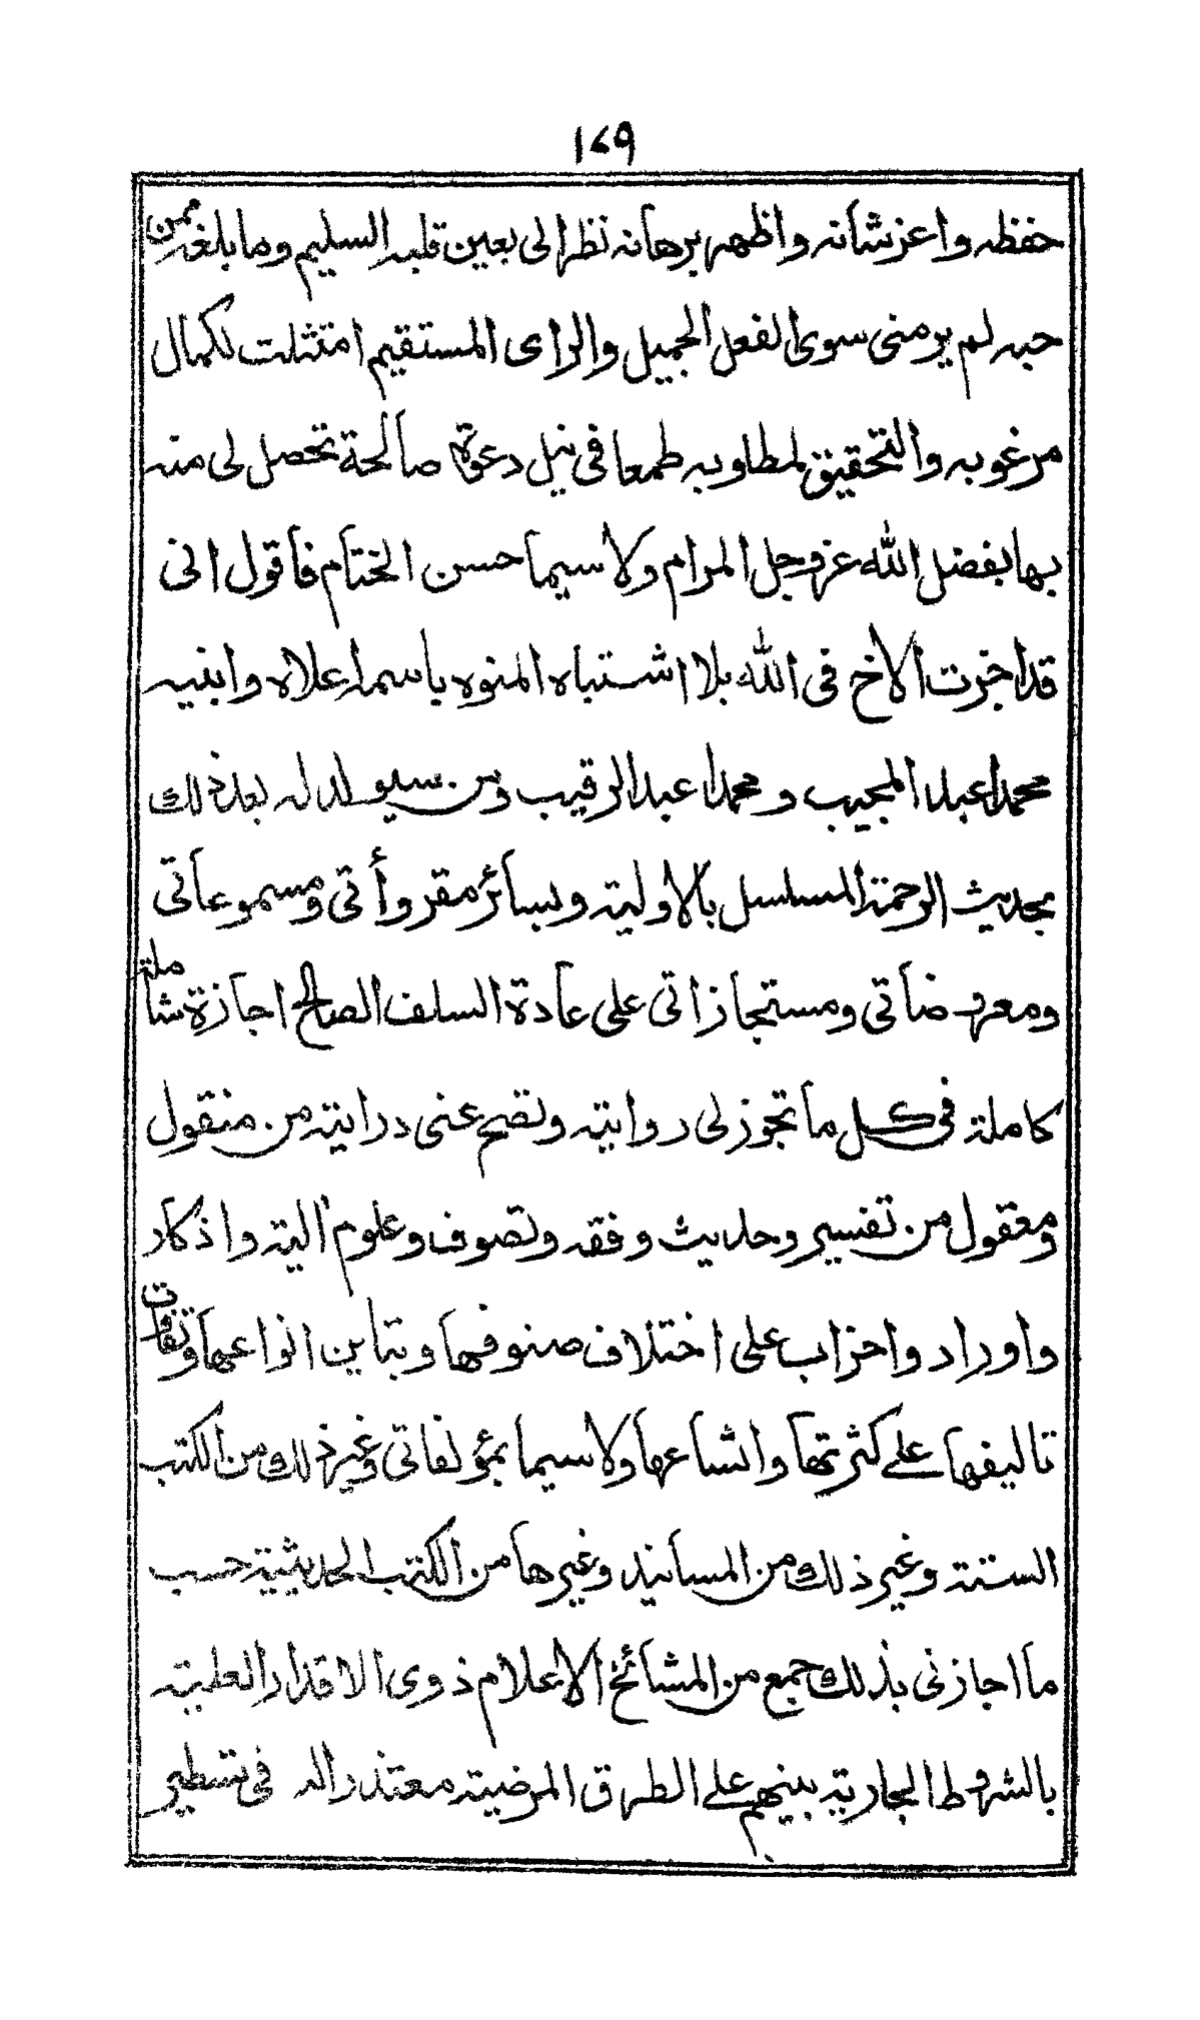 ١٧٩
حفظه واعز شأنه واظهر برهانه نظر الی بعین قلبه السلیم وما بلغه ممن
حبه لم یر منی سوی الفعل الجمیل والرای المستقیم امتثلت لکمال
مرغوبه والتحقیق لمطلوبه طمعا فی نیل دعوة صالحة تحصل لی منه
بها بفضل الله عز وجل المرام ولا سیما حسن الختام فأقول انی
قد اجزت الاخ فی الله بلا اشتباه المنوه باسمه اعلاه وابنیه
محمدا عبد المجیب ومحمدا عبد الرقیب ومن سیولد له بعد ذلک
بحدیث الرحمة المسلسل بالاولیة وبسائر مقروأتی ومسموعاتی
ومعروضاتی ومستجازاتی علی عادة السلف الصالح اجازة شاملة
کاملة فی کل ما تجوز لی روایته وتصح عنی درایته من منقول
ومعقول من تفسیر وحدیث وفقه وتصوف وعلوم الیة واذکار
واوراد واحزاب علی اختلاف صنوفها وتباین انواعها وتفات
تالیفها علی کثرتها واتساعها ولا سیما بمؤلفاتی وغیر ذلک من الکتب
الستة وغیر ذلک من المسانید وغیرها من الکتب الحدیثیة حسب
ما اجازنی بذلک جمع من المشائخ الاعلام ذوی الاقدار العلیة
بالشروط الجاریة بینهم علی الطرق المرضیة معتذرا له فی تسطیر